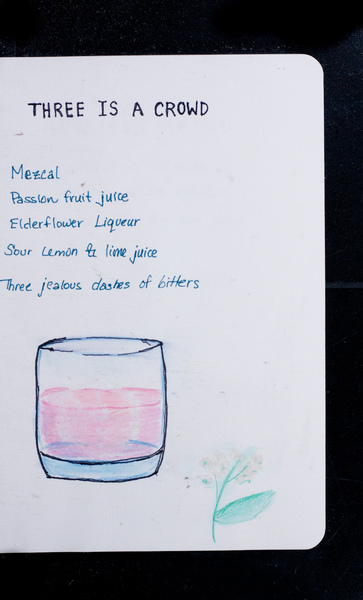 THREE IS A CROWD
Mezcal
Passion fruit juice
Elderflower Liqueur
Sour Lemon & lime juice
Three jealous dashes of bitters